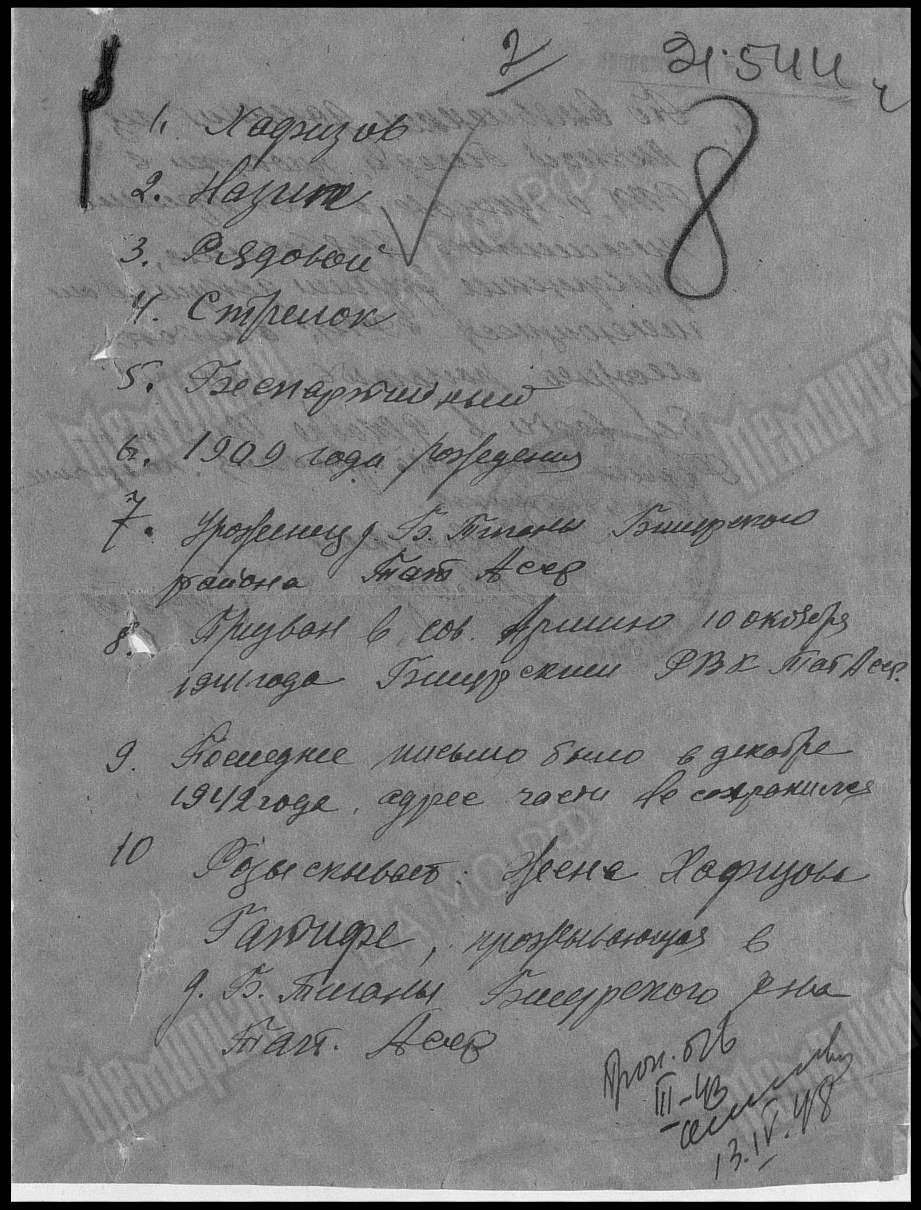 2
21544
8
1. Хафизов
2. Назип
3. Рядовой
4. Стрелок
5. Беспартийный
6. 1909 года рождения
7. Уроженец д. Б. Тиганы Билярского
района Тат АССР
8. Призван в сов. Армию 10 октября
1941 года Билярским РВК Тат АССР.
9. Последнее письмо было в декабре
1942 года. адрес части не сохранился
10 Розыскивает: Жена Хафизова
Гатифе, проживающая в
д. Б. Тиганы Билярского р-на
Тат. АССР
Проп. б/в
III-43
13.IV.48
Мемориал
ЦАМО РФ